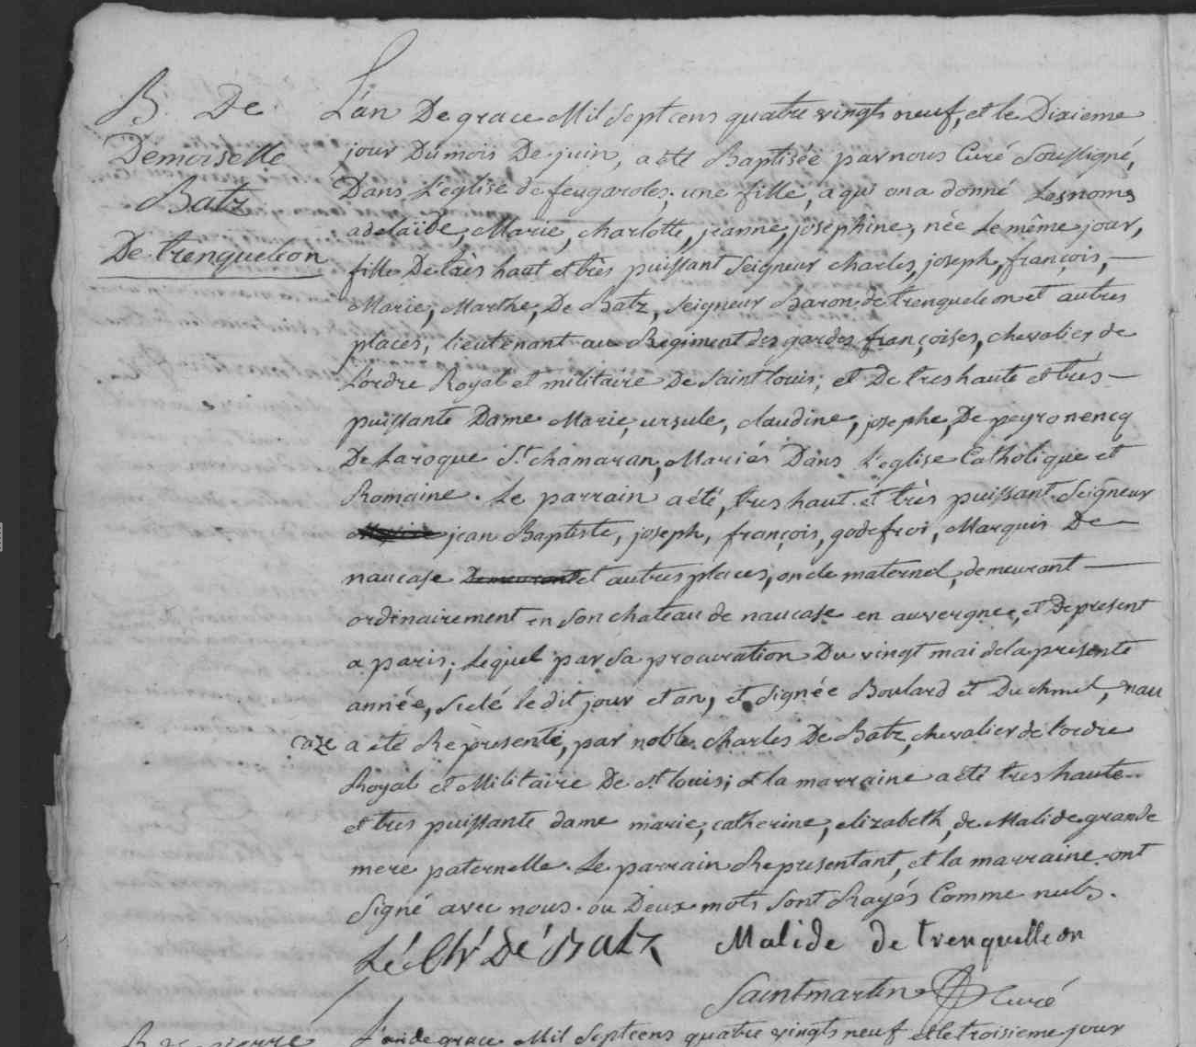 B. De
Demoiselle
Batz
De trenqueleon
L'an De grace Mil Sept cens quatre vingts neuf, et le Dixieme
jour Du mois De juin, a été Baptisée par nous Curé Soussigné,
Dans L'eglise de feugaroles, une fille, a qui on a donné Les noms
adelaïde, Marie, charlotte, jeanne, josephine, née Le même jour,
fille De très haut et très puissant Seigneur charles, joseph, françois, —
Marie, Marthe, De Batz, Seigneur Baron de trenqueleon et autres
places, lieutenant au Regiment des gardes françoises, chevalier de
L'ordre Royal et militaire De Saint louis, et De tres haute et très —
puissante Dame Marie, ursule, claudine, josephe, De peyronencq
De Laroque St. chamaran, Mariés Dans L'eglise Catholique et
Romaine. Le parrain a été, tres haut et très puissant Seigneur
jean Baptiste, joseph, françois, godefroi, Marquis De —
naucase Demeurant et autres places, oncle maternel, demeurant —
ordinairement en Son chateau de naucase en auvergne, et De present
a paris, Lequel par Sa procuration Du vingt mai de la presente
année, Scelé le dit jour et an, et Signée Boulard et Duchmel, nau
caze a été Représenté, par noble charles De Batz, chevalier de l'ordre
Royal et Militaire De St. louis; et la marraine a été tres haute
et tres puissante dame marie, catherine, elizabeth, de Malide grande
mere paternelle. Le parrain Representant, et la marraine ont
Signé avec nous. ou Deux mots Sont Rayés Comme nuls.
Le Chr. de Batz Malide de trenquelleon
Saintmartin Curé
L'an de grace Mil Sept cens quatre vingts neuf et le troisieme jour